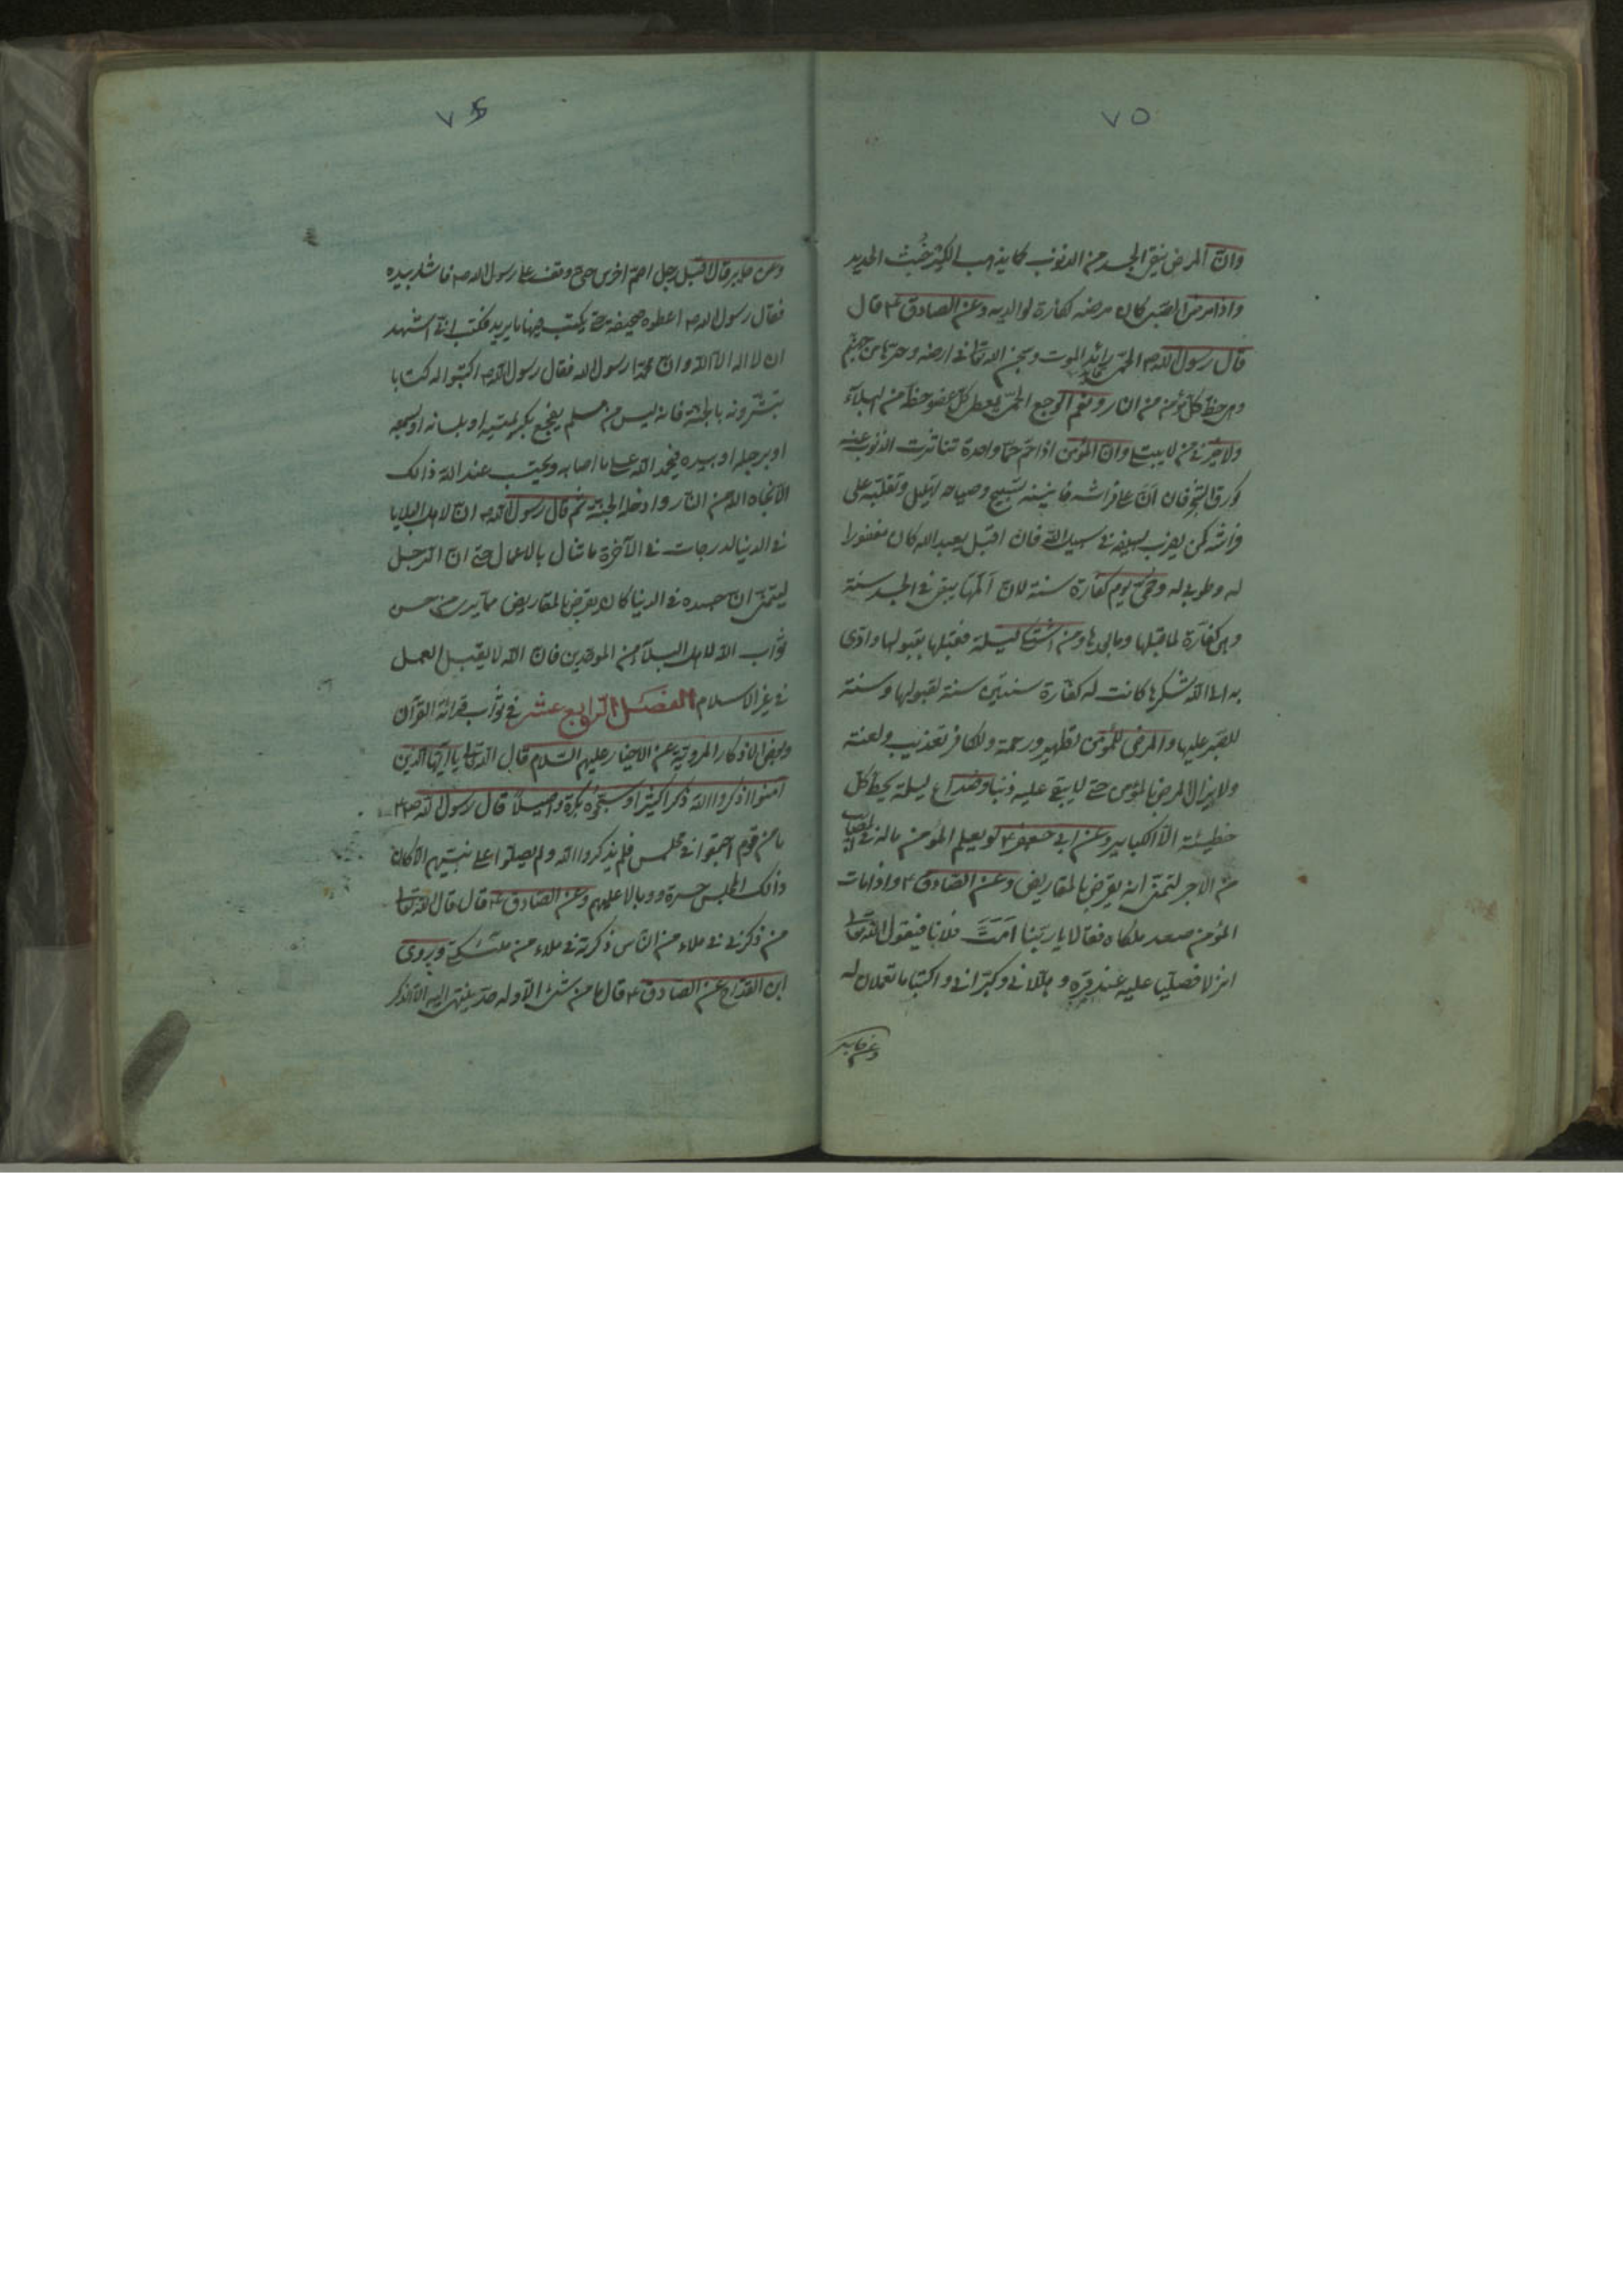 ٧٥
وانّ المرض ينقى الجسد من الذنوب كما يذهب الكير خُبث الحديد
واذا مرض الصّبى كان مرضه كفارة لوالديه وعن الصادق ع قال
قال رسول الله ص الحمّى رائد الموت وسجن الله تعالى فى ارضه وحرّها من جهنّم
وهى حظ كل مؤمن من النار ونعم الوجع الحمّى يعطى كلّ عضو حظّه من البلآء
ولا خير فى من لا يبتلى وانّ المؤمن اذا حمّ حمّا واحدة تناثرت الذنوب عنه
كورق الشجر فان اَنّ على فراشه فانينه تسبيح وصياحه تهليل وتقلّبه على
فراشه كمن يضرب بسيفه فى سبيل الله فان اقبل يعبد الله كان مغفورا
له وطوبى له وحمّى يوم كفارة سنة لانّ اَلَمَها يبقى فى الجسد سنة
وهى كفّارة لما قبلها وما بعدها ومن اشتكى ليلة فقبلها بقبولها وادّى
الى الله شكرها كانت له كفّارة سنتين سنة لقبولها وسنة
للصّبر عليها والمرض للمؤمن تطهير ورحمة وللكافر تعذيب ولعنة
ولا يزال المرض بالمؤمن حتى لا يبقى عليه ذنبا وصداع ليلة يحط كل
خطيئة الّا الكباير وعن ابى جعفر ع لو يعلم المؤمن ماله فى المصايب
من الاجر لتمنّى انه يقرض بالمقاريض وعن الصّادق ع واذا مات
المؤمن صعد ملكاه فقالا يا ربّنا اَمَتَّ فلانا فيقول الله تعالى
انزلا فصلّيا عليه عند قبره وهلّلانى وكبّرانى واكتبا ما تعملان له
وعن جابر
٧٦
وعن جابر قال اقبل رجل اصمّ اخرس حتى وقف على رسول الله ص فاشار بيده
فقال رسول الله ص اعطوه صحيفة حتى يكتب فيها ما يريد فكتب انّى اشهد
ان لا اله الّا الله وانّ محمّدا رسول الله فقال رسول الله ص اكتبوا له كتابا
تبشّرونه بالجنّة فانه ليس من مسلم يفجع بكريمتيه او بلسانه او بسمعه
او برجله او بيده فيحمد الله على ما اصابه ويحتسب عند الله ذالك
الّا نجاه الله من النّار وادخله الجنّة ثم قال رسول الله ص انّ لاهل البلايا
فى الدنيا لدرجات فى الآخرة ما تنال بالاعمال حتى انّ الرّجل
ليتمنّى انّ جسده فى الدنيا كان يقرض بالمقاريض ممّا يرى من حسن
ثواب الله لاهل البلآء من الموحّدين فانّ الله لا يقبل العمل
فى غير الاسلام الفصل الرّابع عشر فى ثواب قرائة القرآن
وبعض الاذكار المرويّة عن الاخيار عليهم السّلام قال الله تعالى يا ايّها الّذين
آمنوا اذكروا الله ذكرا كثيرا وسبّحوه بكرة واصيلًا قال رسول الله ص
ما من قوم اجتمعوا فى مجلس فلم يذكروا الله ولم يصلّوا على نبيّهم الّا كان
ذالك المجلس حسرة ووبالا عليهم وعن الصّادق ع قال قال الله تعالى
من ذكرنى فى ملاء من النّاس ذكرته فى ملاء من ملائكتى ويروى
ابن القدّاح عن الصّادق ع قال ما من شئ الّا وله حدّ ينتهى اليه الّا الذّكر